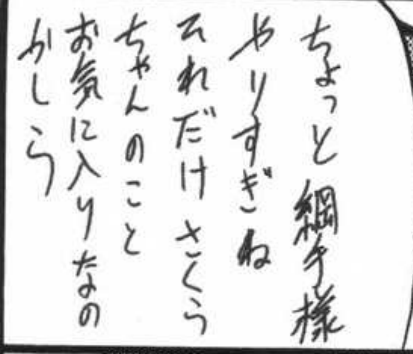 ちょっと綱手様
やりすぎね
それだけさくら
ちゃんのこと
お気に入りなの
かしら